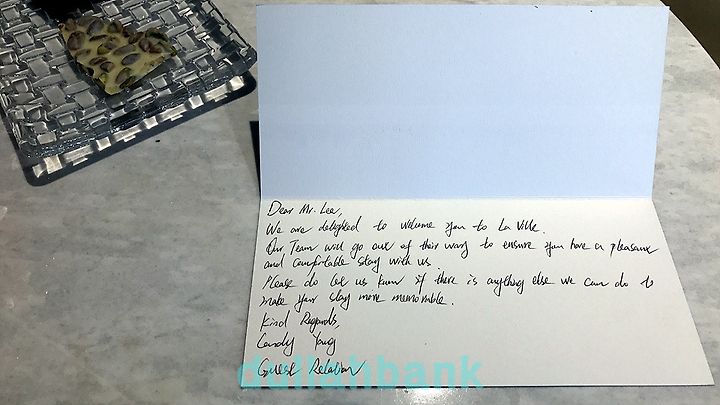 Dear Mr. Lee,
We are delighted to welcome you to La Ville.
Our Team will go out of their way to ensure you have a pleasant
and comfortable stay with us.
Please do let us know if there is anything else we can do to
make your stay more memorable.
Kind Regards,
Candy Yang
Guest Relation
dullahbank